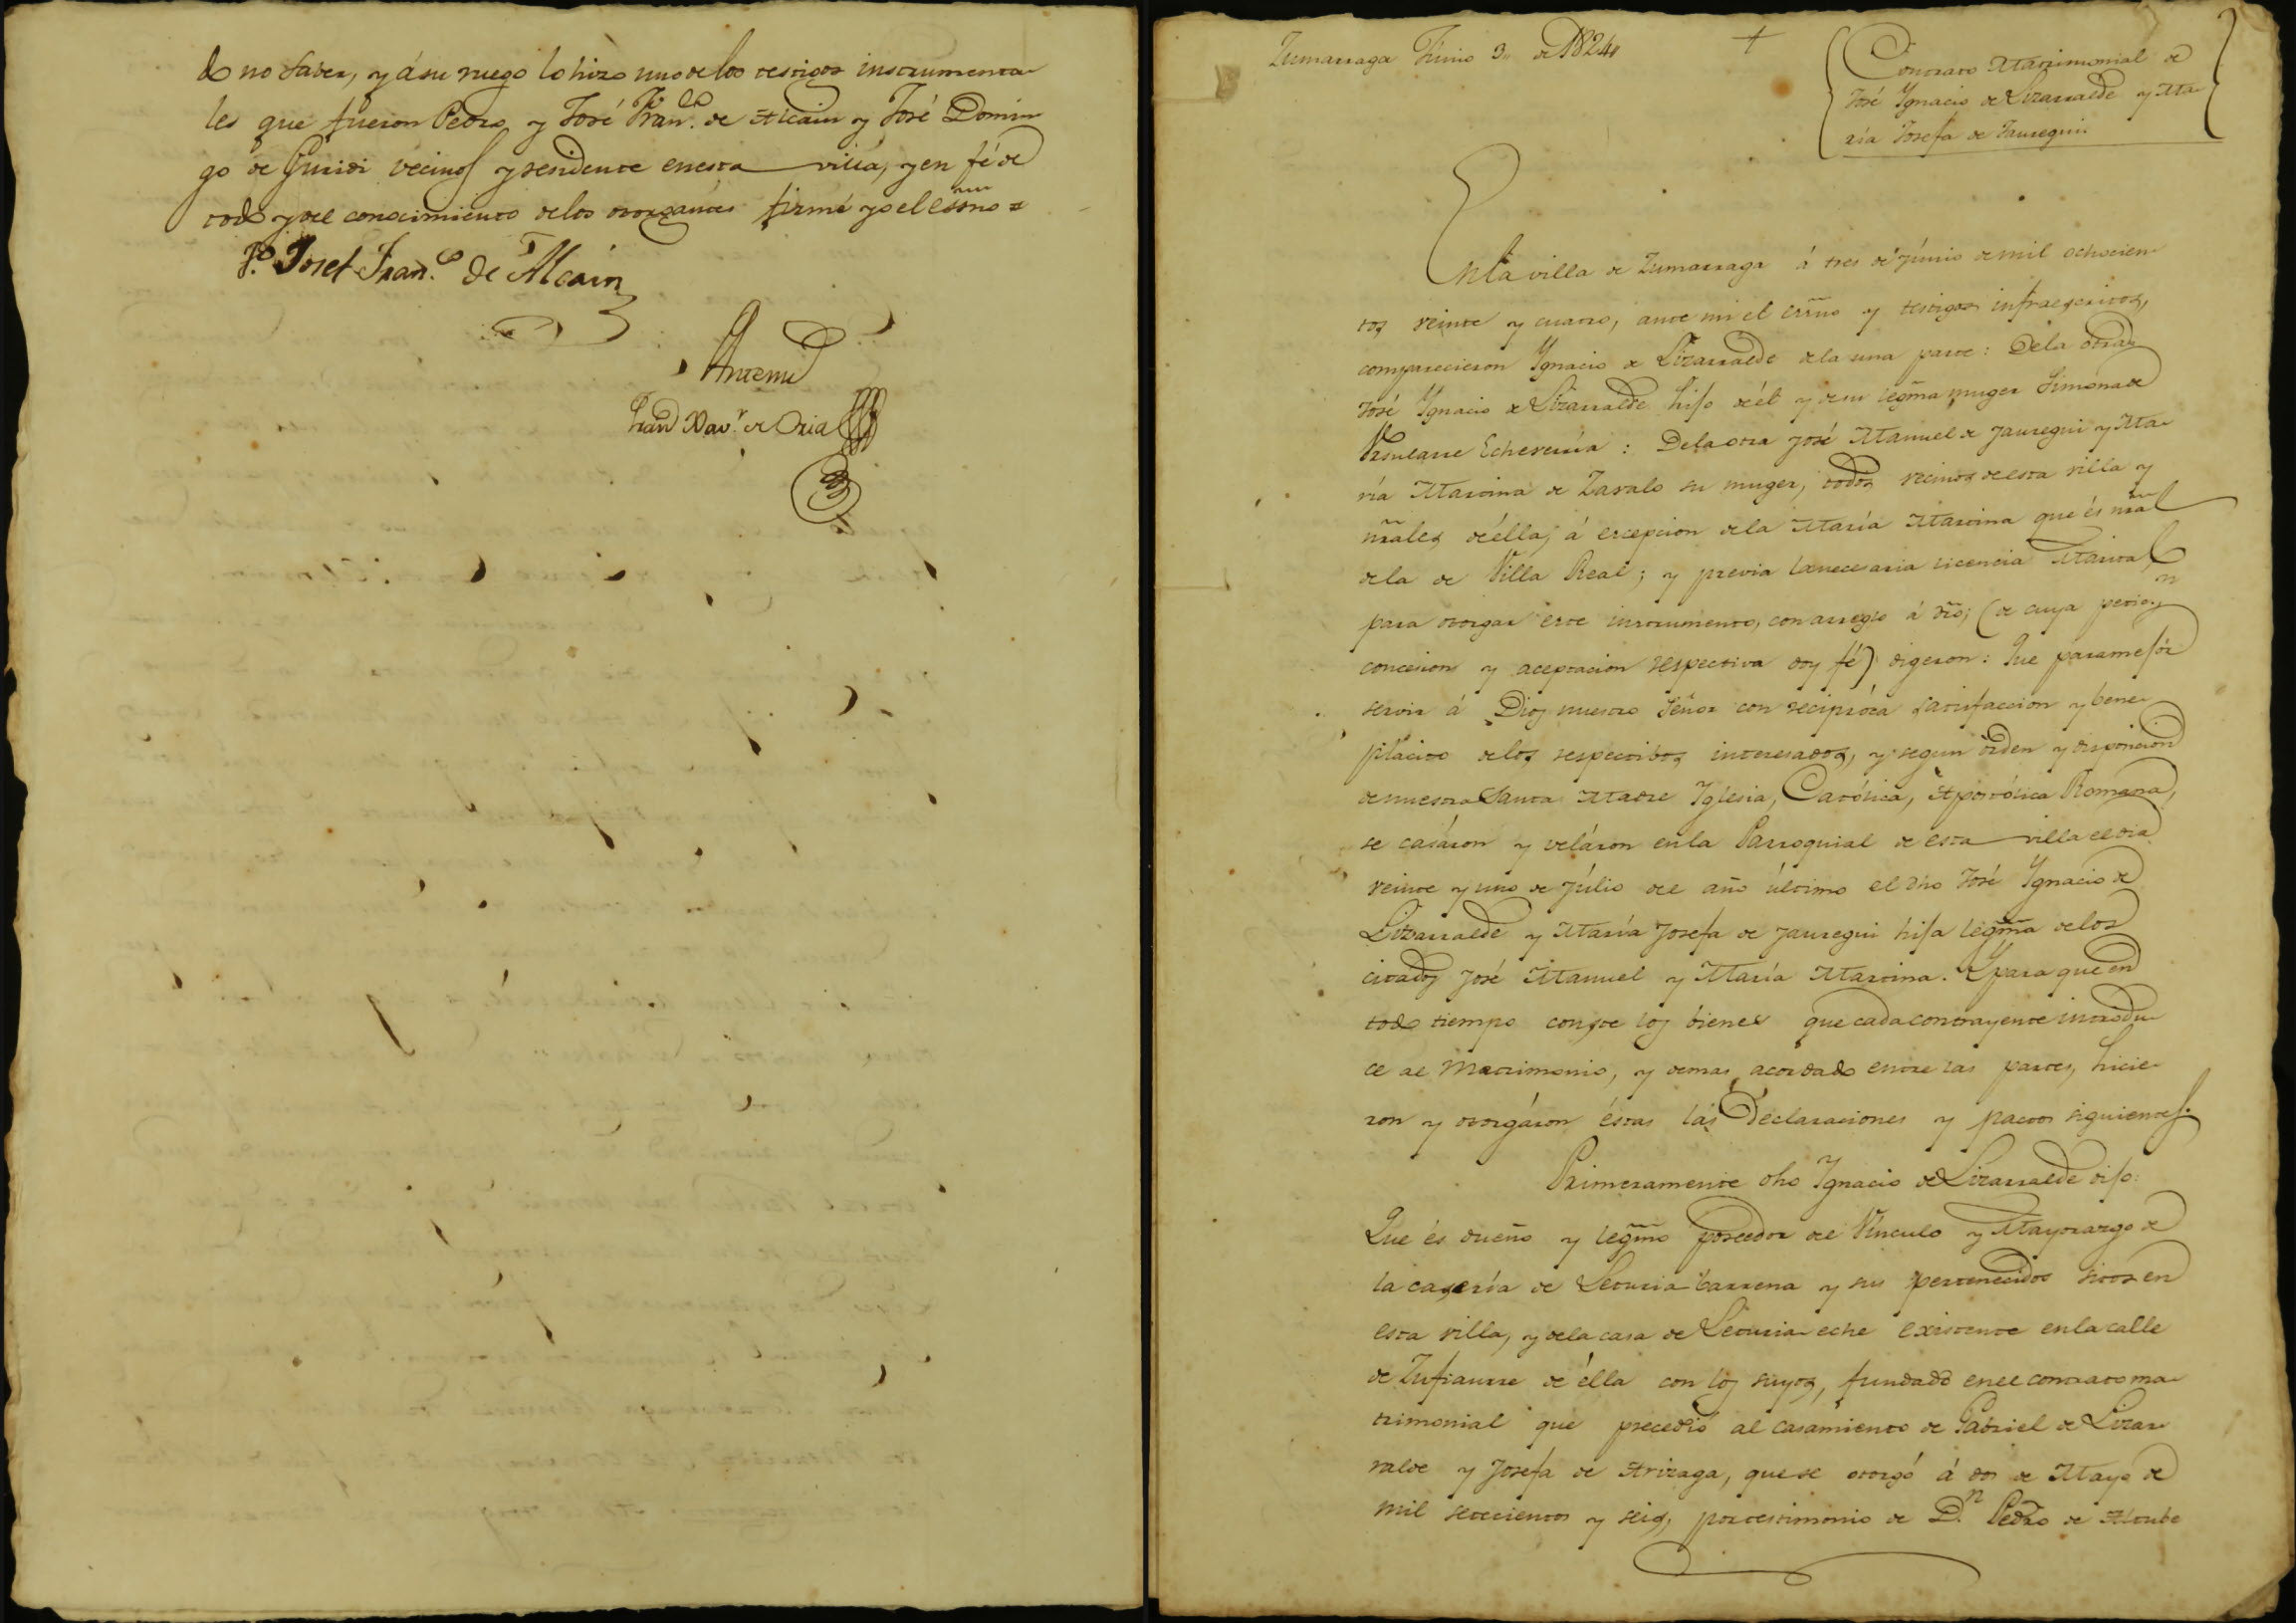 do no saver, y á su ruego lo hizo uno de los testigos instrumenta-
les que fueron Pedro y José Fran.co de Alcain y José Domin-
go de Guridi vecinos y residente en esta villa, y en fé de
todo y del conocimiento de los otorgantes firmé yo el essno =
Jo. Josef Fran.co de Alcain
Antemi
Fran Xav.r de Oria
Zumarraga Junio 3,, de 1824,,
+
Contrato Matrimonial de
José Ygnacio de Lizarralde y Ma-
ría Josefa de Jauregui.
En la villa de Zumarraga á tres de júnio de mil ochocien-
tos veinte y cuatro, ante mi el essno y testigos infraescritos,
comparecieron Ygnacio de Lizarralde de la una parte: De la otra
José Ygnacio de Lizarralde hijo de él y de su legma muger Simona de
Echeverría : De la otra José Manuel de Jauregui y Ma-
ría Martina de Zavalo su muger, todos vecinos de esta villa y
nrales de élla, á escepcion de la María Martina que és nral
de la de Villa Real; y previa la necesaria licencia Marital
para otorgar este instrumento, con arreglo á dro, (de cuya petic.on
concesion y aceptacion respectiva doy fé) digeron: Que para mejór
servir á Dios nuestro Señor con recipróca satisfaccion y bene-
plácito de los respectibos interesados, y segun órden y disposicion
de nuestra Santa Madre Yglesia, Católica, Apostólica Romana,
se casáron y veláron en la Parroquial de esta villa el dia
veinte y uno de Júlio del año último el dho José Ygnacio de
Lizarralde y María Josefa de Jauregui hija legma de los
citados José Manuel y María Martina. Y para que en
todo tiempo conste los bienes que cada contrayente introdu-
ce al Matrimonio, y demas acordado entre las partes, hicie-
ron y otorgáron éstas lás Declaraciones y pactos siguientes.
Primeramente dho Ygnacio de Lizarralde dijo:
Que és dueño y legmo poseedor del Vínculo y Mayorazgo de
la casería de Leturia-barrena y sus pertenecidos sitos en
esta villa, y de la casa de Leturia-eche existente en la calle
de Zufiaurre de élla con los suyos, fundado en el contrato ma-
trimonial que precedió al casamiento de Gabriel de Lizar-
ralde y Josefa de Arizaga, que se otorgó á dos de Mayo de
mil setecientos y seis, por testimonio de D.n Pedro de Alcube